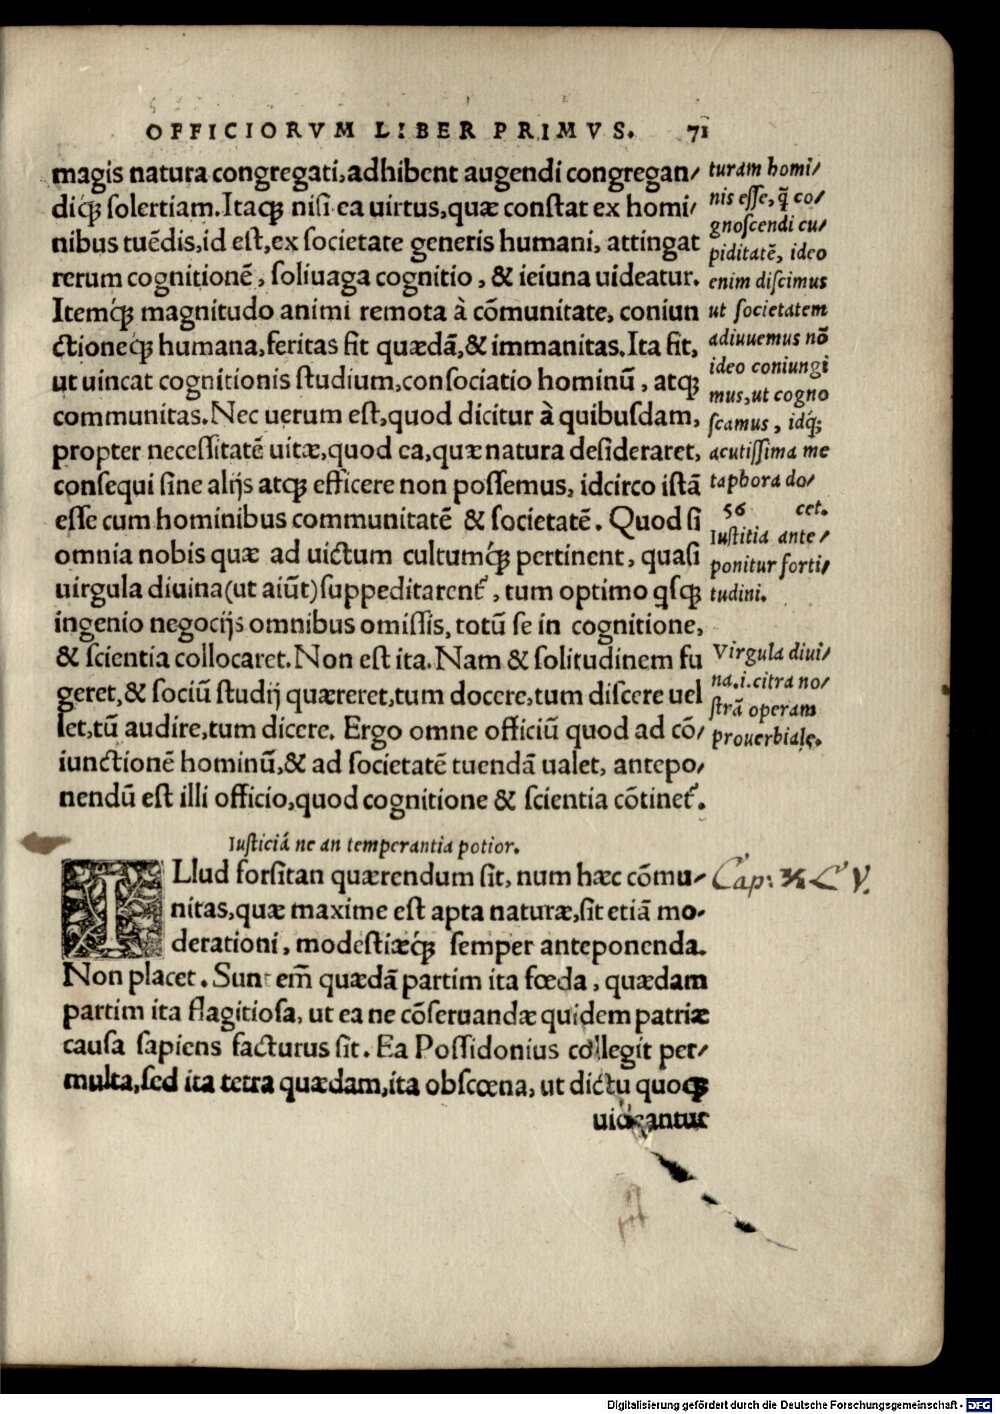 OFFICIORVM LIBER PRIMVS. 71
magis natura congregati, adhibent augendi congregan/
diq; solertiam. Itaq; nisi ea uirtus, quæ constat ex homi/
nibus tuẽdis, id est, ex societate generis humani, attingat
rerum cognitionẽ, soliuaga cognitio, & ieiuna uideatur.
Itemq́; magnitudo animi remota à cõmunitate, coniun
ctioneq́; humana, feritas sit quædã, & immanitas. Ita fit,
ut uincat cognitionis studium, consociatio hominũ, atq;
communitas. Nec uerum est, quod dicitur à quibusdam,
propter necessitatẽ uitæ, quod ea, quæ natura desideraret,
consequi sine alijs atq; efficere non possemus, idcirco istã
esse cum hominibus communitatẽ & societatẽ. Quod si
omnia nobis quæ ad uictum cultumq́; pertinent, quasi
uirgula diuina (ut aiũt) suppeditarent᷑, tum optimo q̇sq;
ingenio negocijs omnibus omissis, totũ se in cognitione,
& scientia collocaret. Non est ita. Nam & solitudinem fu
geret, & sociũ studij quæreret, tum docere, tum discere uel
let, tũ audire, tum dicere. Ergo omne officiũ quod ad cõ/
iunctionẽ hominũ, & ad societatẽ tuendã ualet, antepo/
nendũ est illi officio, quod cognitione & scientia cõtinet᷑.
Iusticiã ne an temperantia potior.
ILlud forsitan quærendum sit, num hæc cõmu-
nitas, quæ maxime est apta naturæ, sit etiã mo-
derationi, modestiæq́; semper anteponenda.
Non placet. Sunt em̃ quædã partim ita fœda, quædam
partim ita flagitiosa, ut ea ne cõseruandæ quidem patriæ
causa sapiens facturus sit. Ea Possidonius collegit per/
multa, sed ita tetra quædam, ita obscœna, ut dictu quoq;
uideantur
turam homi/
nis esse, q̃ co/
gnoscendi cu/
piditatẽ, ideo
enim discimus
ut societatem
adiuuemus nõ
ideo coniungi
mus, ut cogno
scamus, idq́;
acutissima me
taphora do/
56 cet.
Iustitia ante/
ponitur forti/
tudini.
Virgula diui/
na. i. citra no/
strã operam
prouerbialę.
Cap: V.
Digitalisierung gefördert durch die Deutsche Forschungsgemeinschaft - DFG